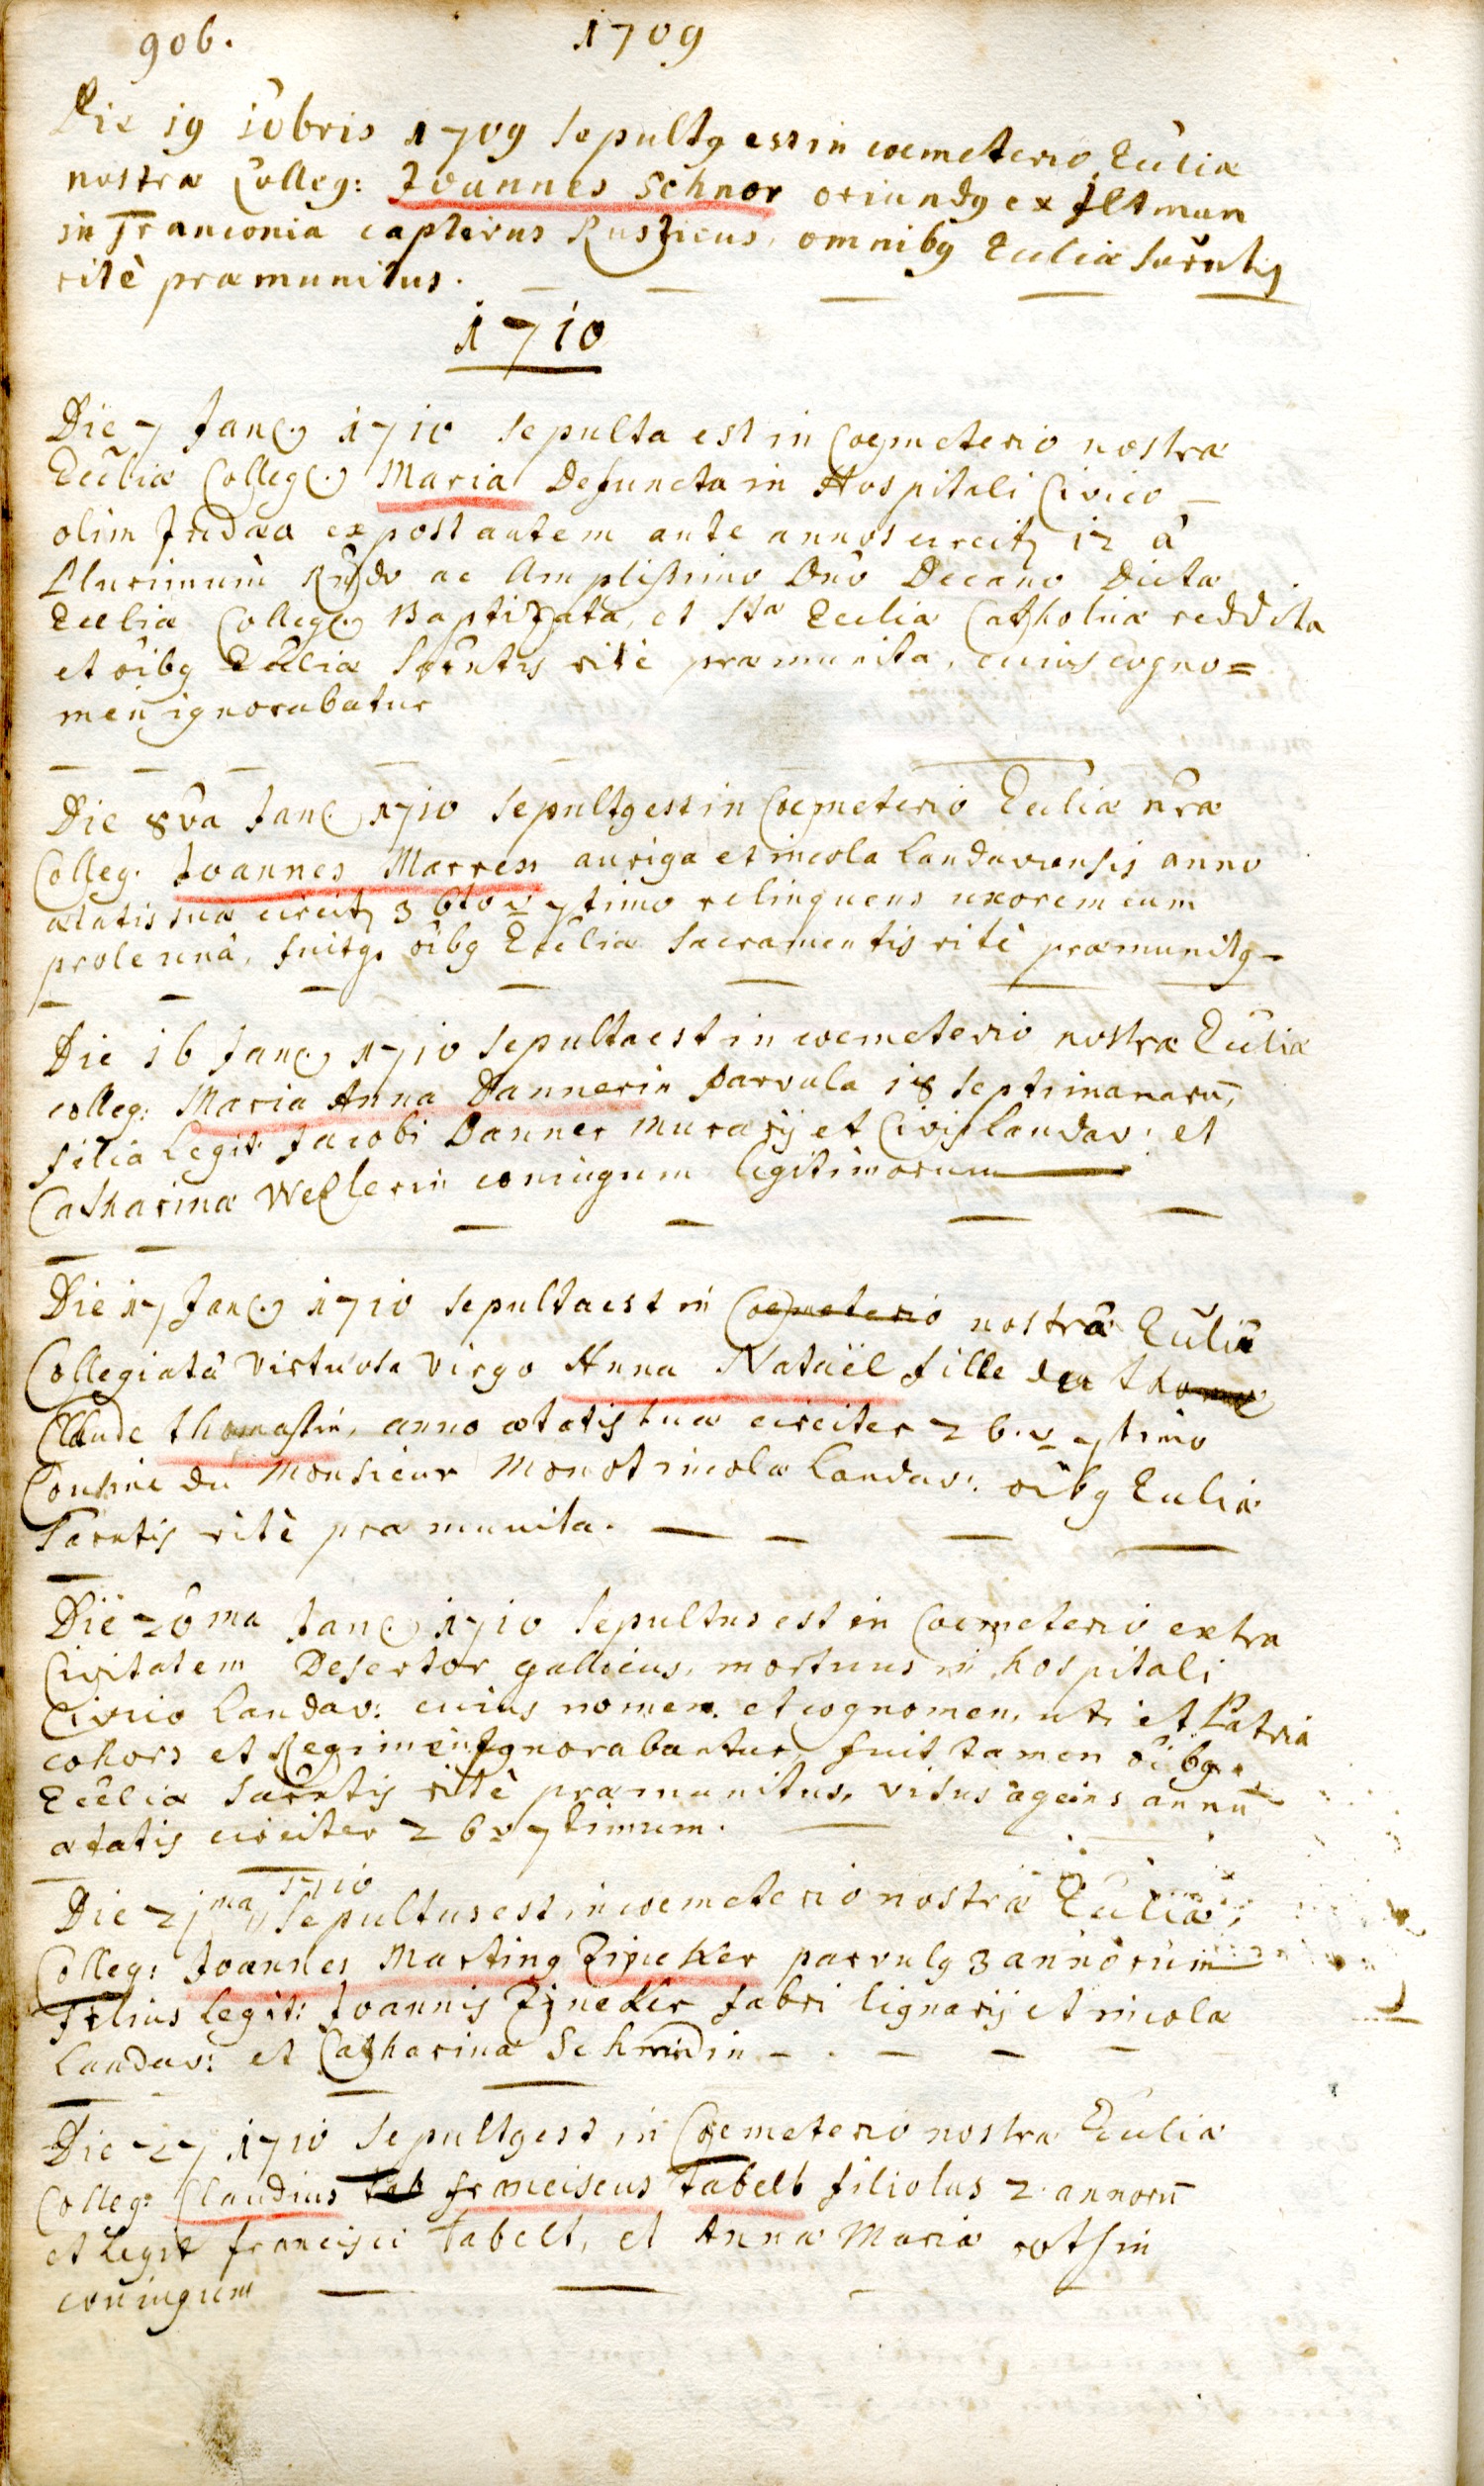 906. 1709
Die 19 10bris 1709 sepultg est in coemeterio Eccliæ
nostræ Colleg: Joannes Schnor oriundg ex Eltman
in Franconia captivus Rusticus, omnibg Eccliæ Sacrntis
ritè præmunitus.
1710
Die 7 Jan(.) 1710 sepulta est in Coemeterio nostræ
Eccliæ Colleg(.) Maria Defuncta in Hospitali Civico
olim Judæa ex post autem ante annos circit 12 â
Plurimum Rndo ac Amplissimo Dno Decano Dictæ
Eccliæ Colleg(.) Baptizata, et Stæ Eccliæ Catholicæ reddita
et oibg Eccliæ Sacrntis ritè præmunita, cuius cogno=
men ignorabatur
Die 8va Jan(.) 1710 sepultg est in Coemeterio Eccliæ nræ
Colleg. Joannes Marren auriga et incola Landaviensis anno
ætatis suæ circit 3 6to v 7timo relinquens uxorem cum
prole unâ, fuitq. oibg Eccliæ Sacramentis ritè præmunitg
Die 16 Jan(.) 1710 sepulta est in coemeterio nostræ Eccliæ
colleg: Maria Anna Dannerin parvula 18 septimanarū,
filia Legit: Jacobi Danner murarij et Civis Landav: et
Catharinæ Wellerin coniugum legitimorum
Die 17 Jan(.) 1710 sepulta est in Coemeterio nostrâ Ecclia
Collegiatâ virtuosa virgo Anna Nataël fille de thoma
Claude thomassin, anno ætatis suæ circiter 2 6. v 7timo
Cousine du Monsieur Monot incola Landav: oibg Eccliæ
Sacrntis ritè præmunita.
Die 20ma Jan(.) 1710 sepultus est in Coemeterio extra
Civitatem Desertor gallicus, mortuus in hospitali
Civico Landav: cuius nomen et cognomen, uti et Patria
cohors et Regiment Ignorabantur, fuit tamen oibg
Eccliæ Sacrntis ritè præmunitus, visus agens annū
ætatis circiter 2 6 v 7timum.
Die 21ma 1710 sepultus est in coemeterio nostræ Eccliæ
Colleg: Joannes Marting Zineker parvulg 3 annorum
Filius Legit: Joannis Zineker fabri lignarij et incolæ
Landav: et Catharinæ Schmidin
Die 27 1710 sepultg est in Coemeterio nostræ Eccliæ
Colleg: Claudius tab franciscus tabelt filiolus 2 annorū
et Legit francisci tabelt, et Annæ Mariæ rothin
coniugum